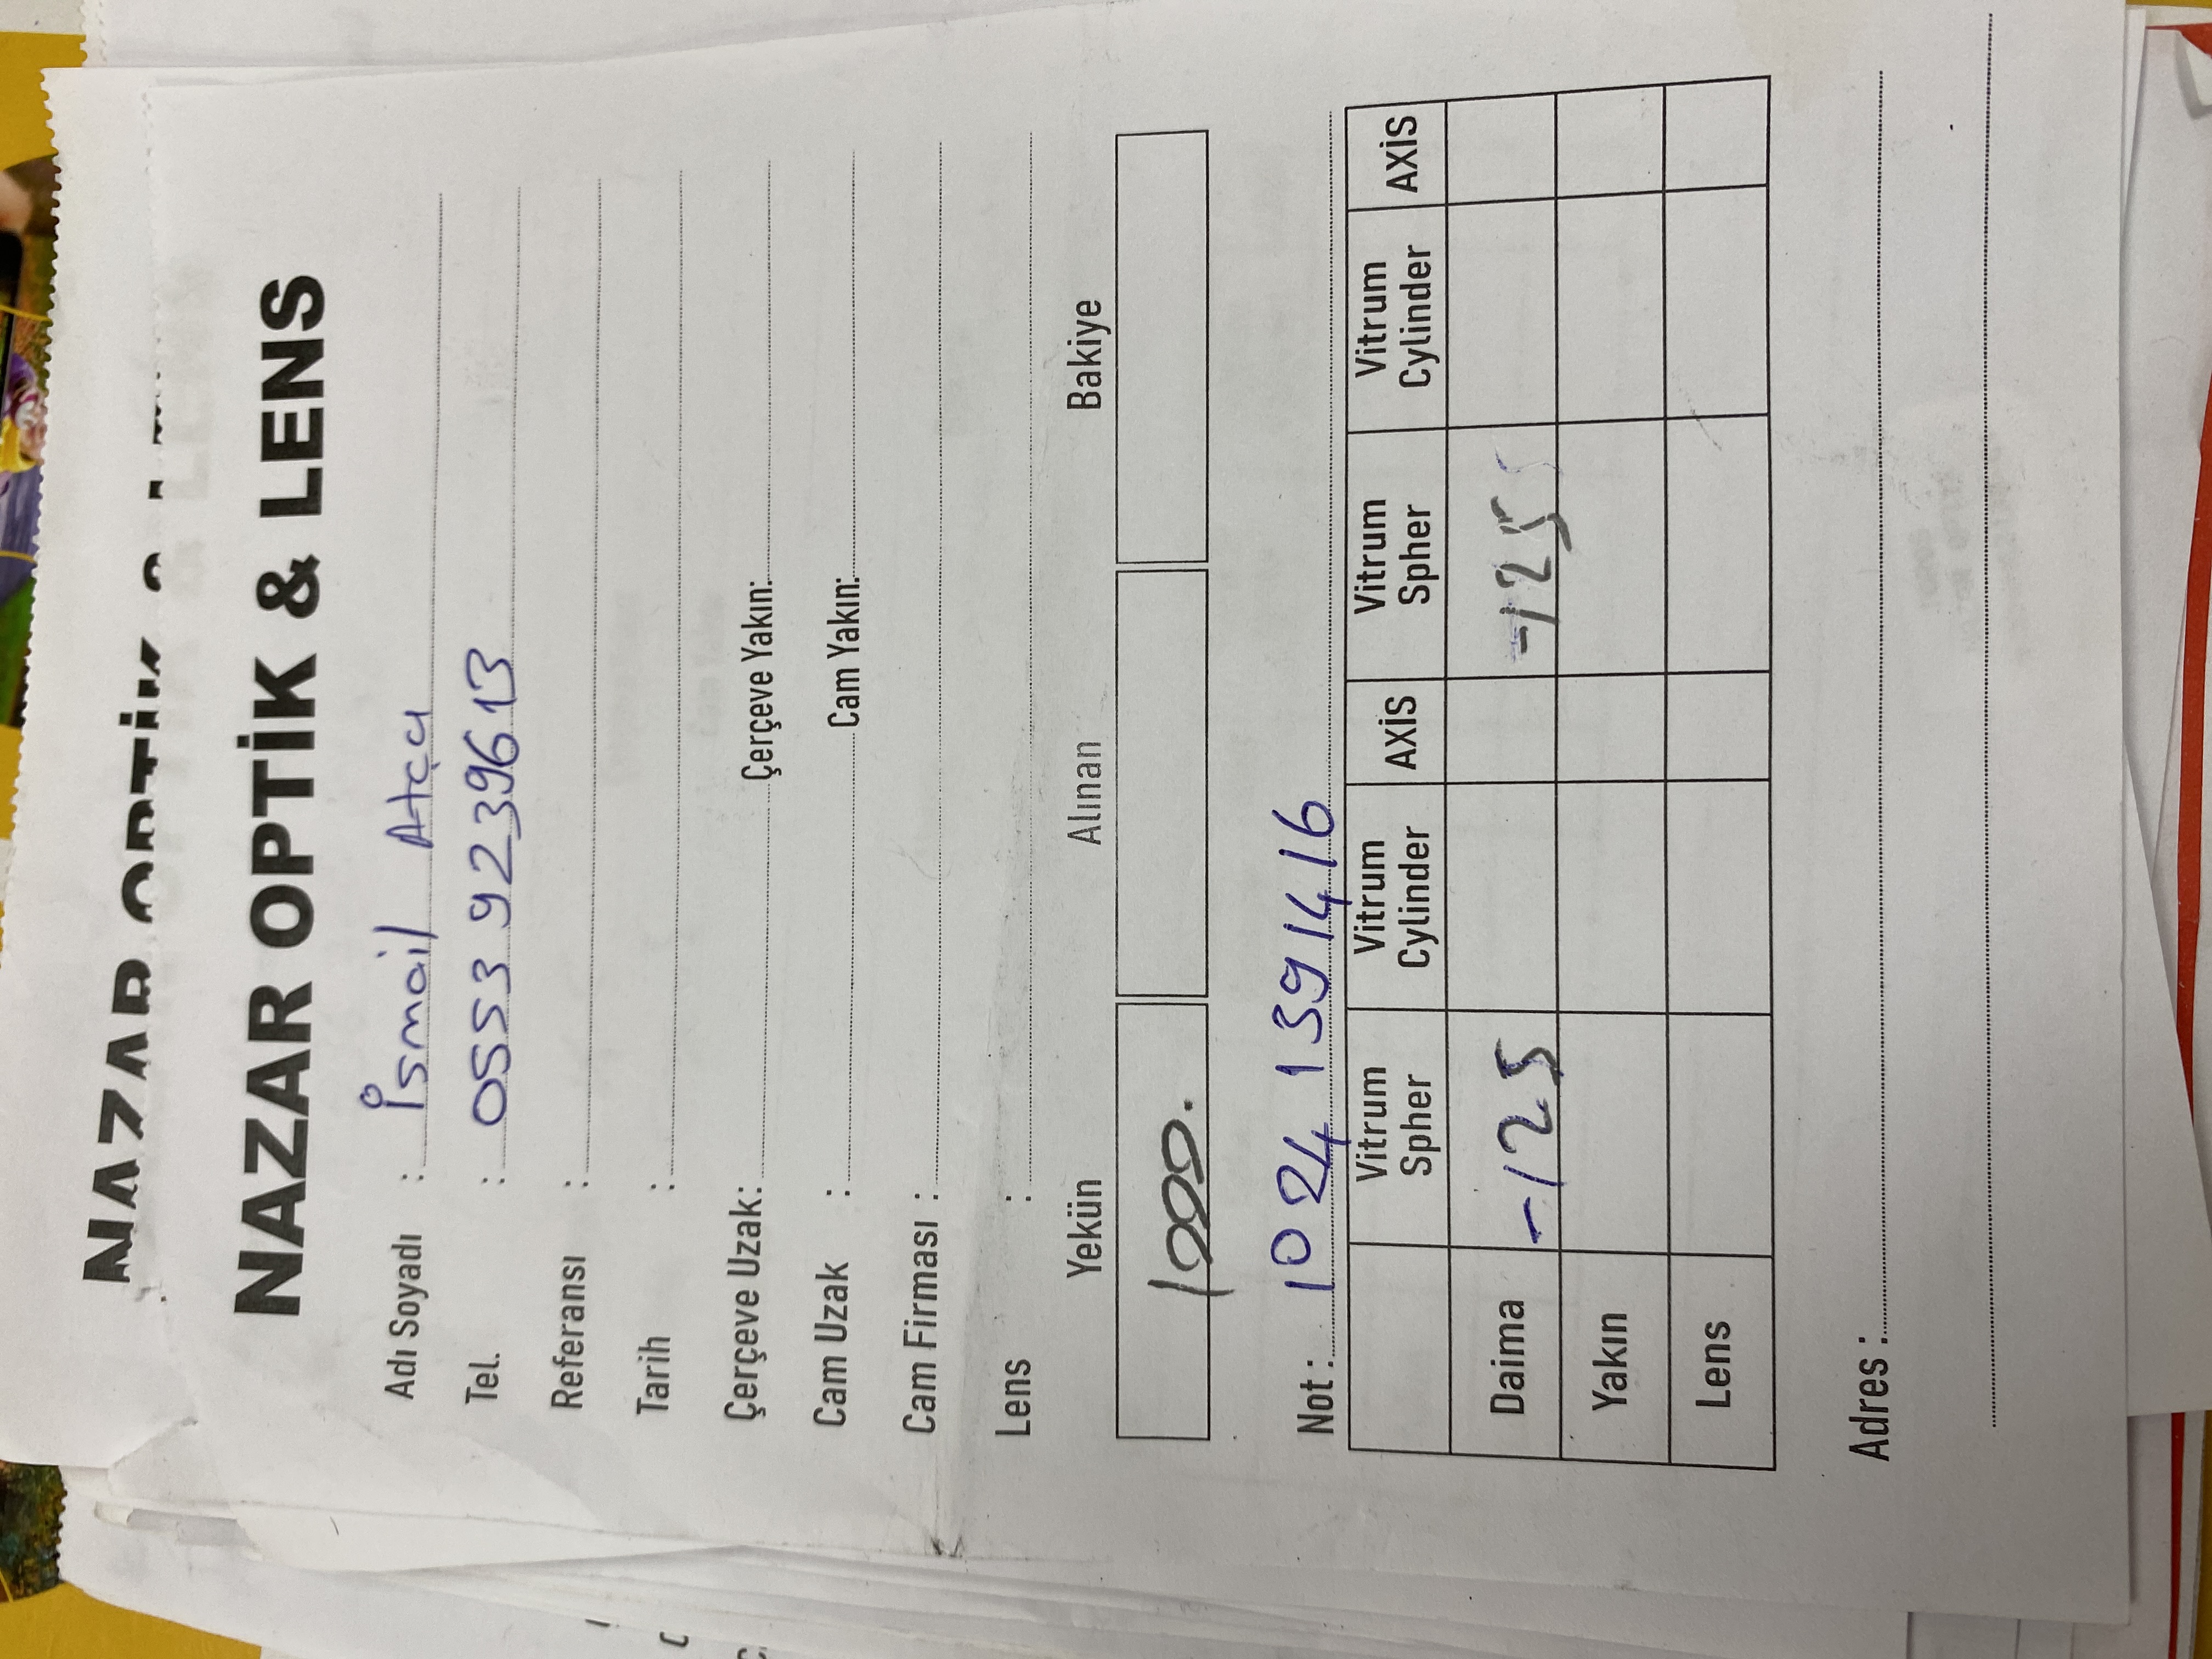 NAZAR OPTİK & LENS
NAZAR OPTİK & LENS
Adı Soyadı : İsmail Atçı
Tel. : 0553 9239613
Referansı :
Tarih :
Çerçeve Uzak: Çerçeve Yakın:
Cam Uzak : Cam Yakın:
Cam Firması :
Lens :
Yekün Alınan Bakiye
1000.
Not : 1024 1391416
Vitrum Spher Vitrum Cylinder AXİS Vitrum Spher Vitrum Cylinder AXİS
Daima -125 -125
Yakın
Lens
Adres :